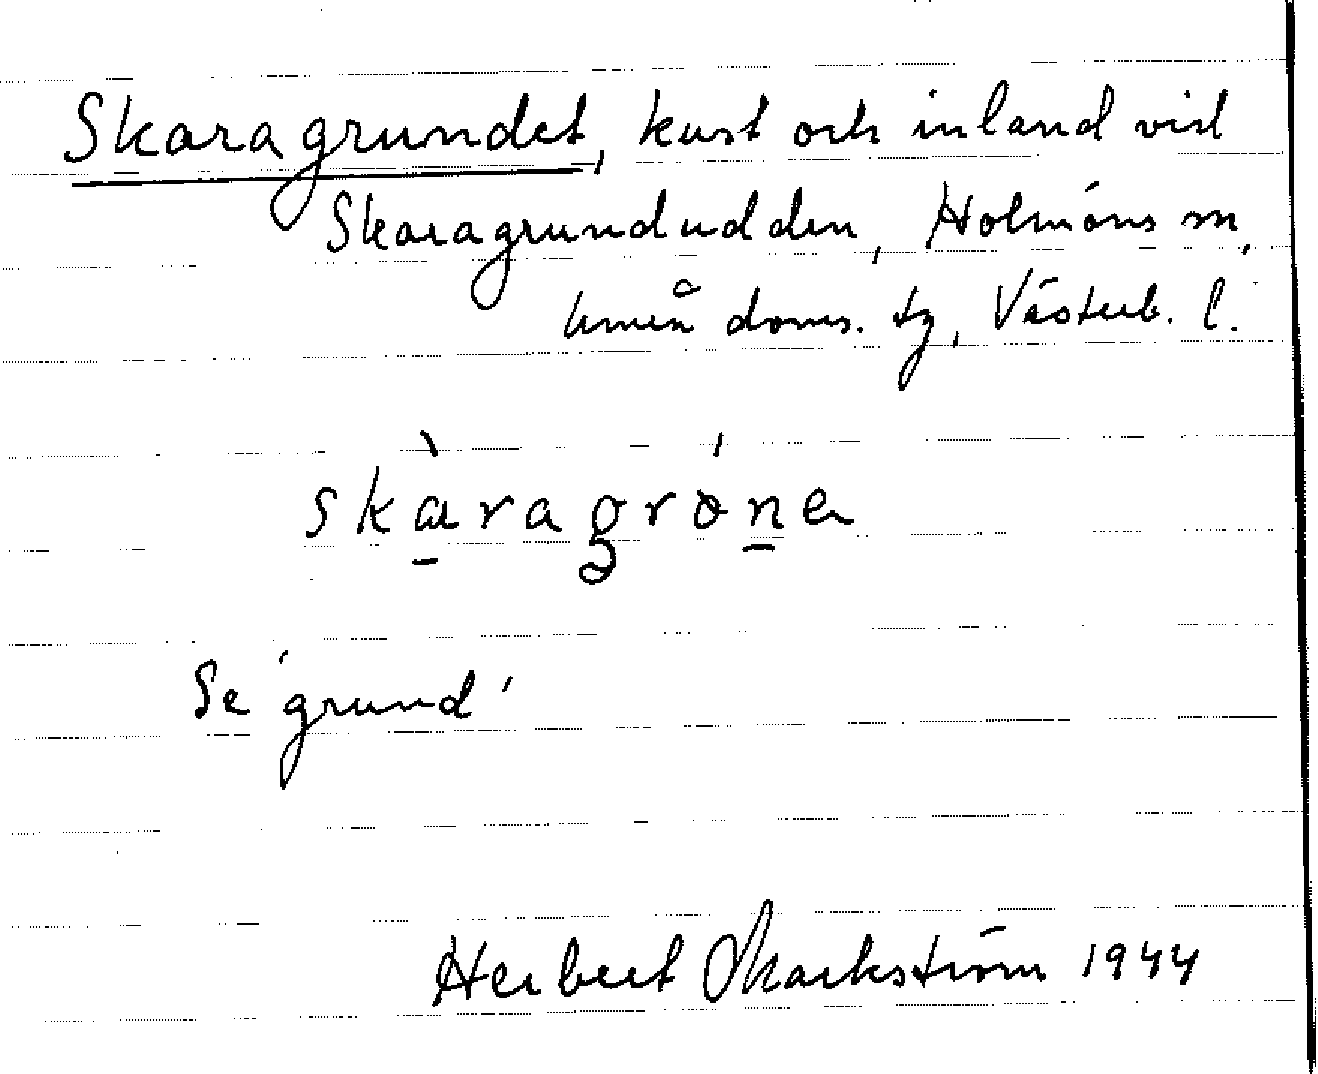 Skaragrundet, kust och inland vid
Skaragrundudden, Holmöns sn,
Umeå doms. tg, Västerb. l.
skàragrónα
Se 'grund'
Herbert Markström 1944